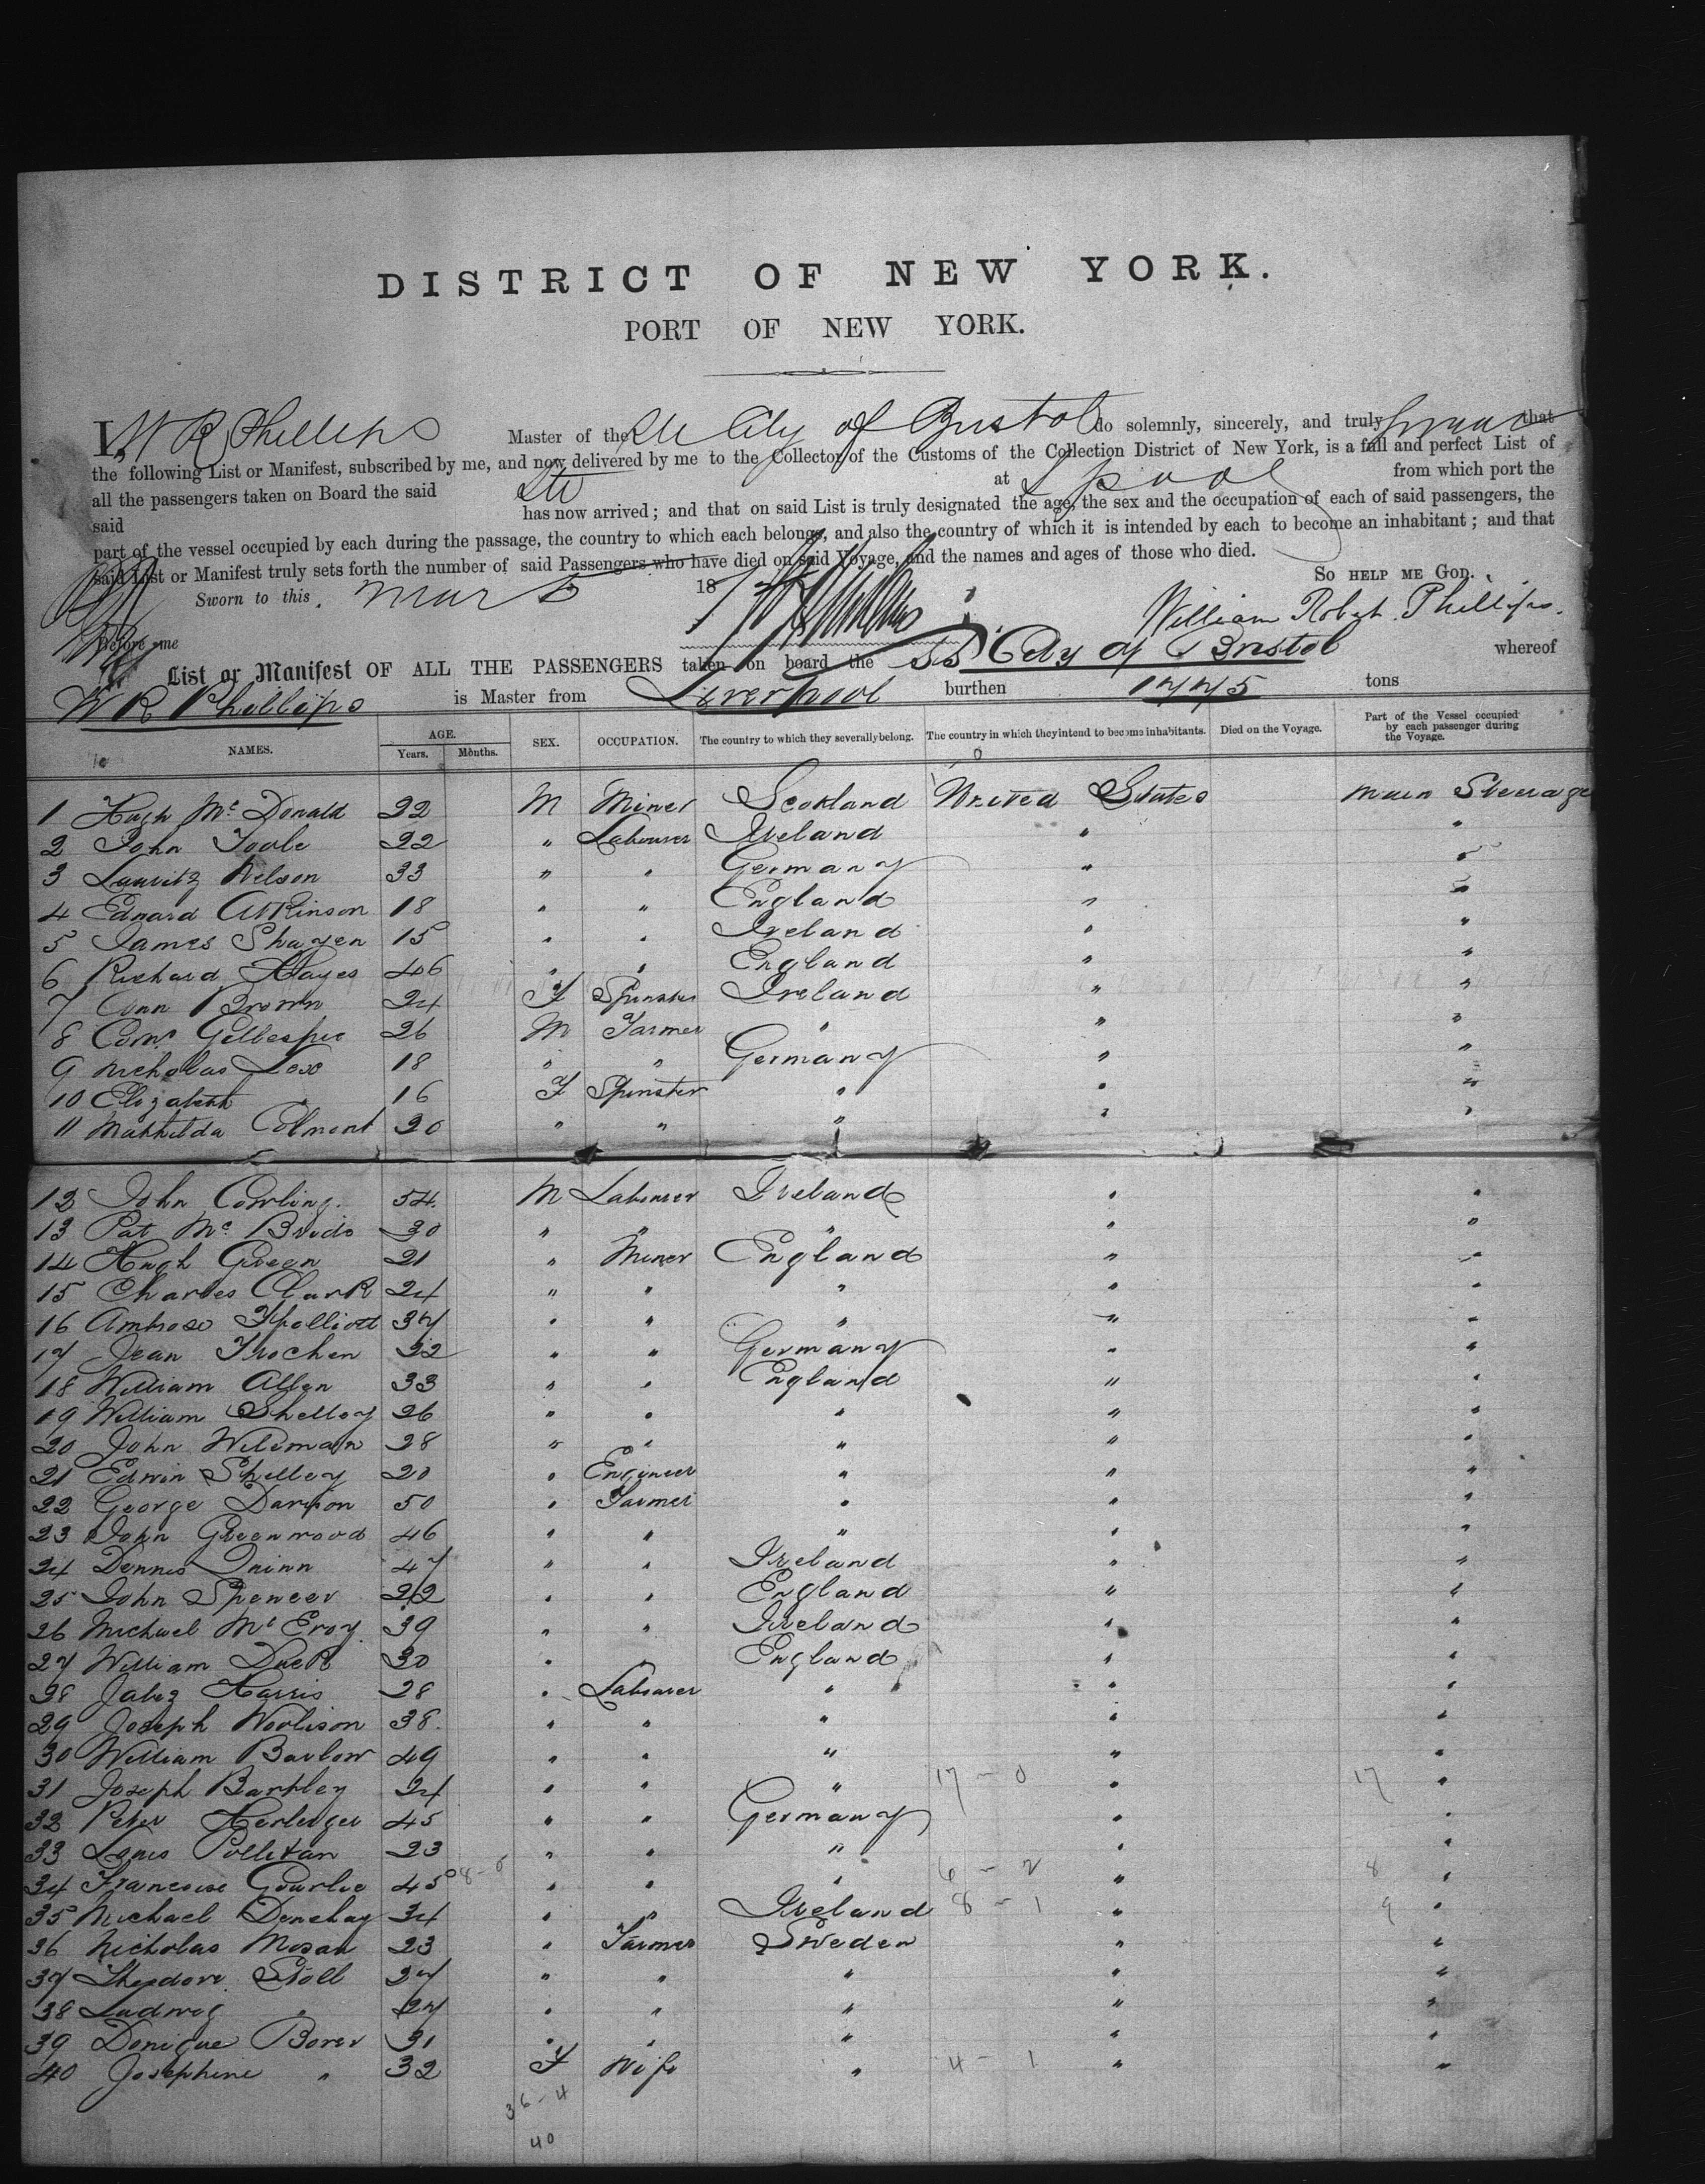 DISTRICT OF NEW YORK.
PORT OF NEW YORK.
I, W R Phillips Master of the Str City of Bristol do solemnly, sincerely, and truly swear that
the following List or Manifest, subscribed by me, and now delivered by me to the Collector of the Customs of the Collection District of New York, is a full and perfect List of
all the passengers taken on Board the said Str at Lpool from which port the
said has now arrived; and that on said List is truly designated the age, the sex and the occupation of each of said passengers, the
part of the vessel occupied by each during the passage, the country to which each belongs, and also the country of which it is intended by each to become an inhabitant; and that
said List or Manifest truly sets forth the number of said Passengers who have died on said Voyage, and the names and ages of those who died.
So HELP ME GOD.
Sworn to this Mar 5 18 William Robert Phillips.
Before me
List or Manifest OF ALL THE PASSENGERS taken on board the SS City of Bristol whereof
W R Phillips is Master from Liverpool burthen 1775 tons
NAMES. AGE. Years. Months. SEX. OCCUPATION. The country to which they severally belong. The country in which they intend to become inhabitants. Died on the Voyage. Part of the Vessel occupied by each passenger during the Voyage.
1 Hugh Mc Donald 22 M Miner Scotland United States Main Steerage
2 John Toole 22 " Labourer Ireland " "
3 Lauritz Nelson 33 " " Germany " "
4 Edward Atkinson 18 " " England " "
5 James 15 " " Ireland " "
6 Richard Hayes 46 " " England " "
7 Ann Brown 24 F Spinster Ireland " "
8 Gillespie 26 M Farmer " " "
9 Nicholas 18 " " Germany " "
10 Elizabeth " 16 F Spinster " " "
11 Mathilda Colmont 20 " " " " "
12 John Cowling. 54 M Labourer Ireland " "
13 Pat Mc Bride 30 " " " " "
14 Hugh Green 21 " Miner England " "
15 Charles Clark 24 " " " " "
16 Ambrose 37 " " " " "
17 Jean Trochen 22 " " Germany " "
18 William Allen 33 " " England " "
19 William Shelley 26 " " " " "
20 John Wildman 28 " " " " "
21 Edwin Shelley 20 " Engineer " " "
22 George 50 " Farmer " " "
23 John Greenwood 46 " " " " "
24 Dennis Quinn 47 " " Ireland " "
25 John Spencer 22 " " England " "
26 Michael Mc Evoy 39 " " Ireland " "
27 William Duck 30 " " England " "
28 Jabez Harris 28 " Labourer " " "
29 Joseph Woolison 38 " " " " "
30 William Barlow 49 " " " " "
31 Joseph 24 " " " 17 - 0 " 17 "
32 Peter 45 " " Germany " "
33 Louis 23 " " " " "
34 Francoise Gourlie 45 8-5 " " " 6 - 2 " 8 "
35 Michael Denehay 34 " " Ireland 8 - 1 " 9 "
36 Nicholas Mosan 23 " Farmer Sweden " "
37 Theodore Stoll 27 " " " " "
38 Ludwig " 27 " " " " "
39 Donique Borer 31 " " " " "
40 Josephine " 32 F Wife " 4 - 1 " "
36 - 4
40